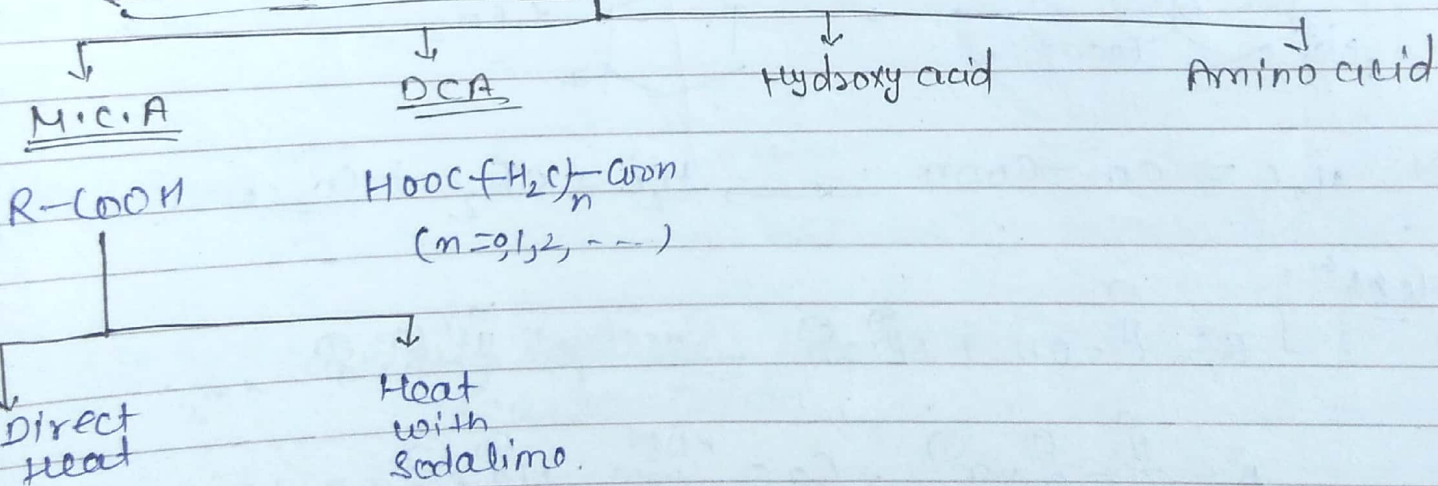 M.C.A
DCA
Hydroxy acid
Amino acid
R-COOH
HOOC-(H₂C)ₙ-COOH
(n=0,1,2,----)
Direct
Heat
Heat
with
Sodalime.